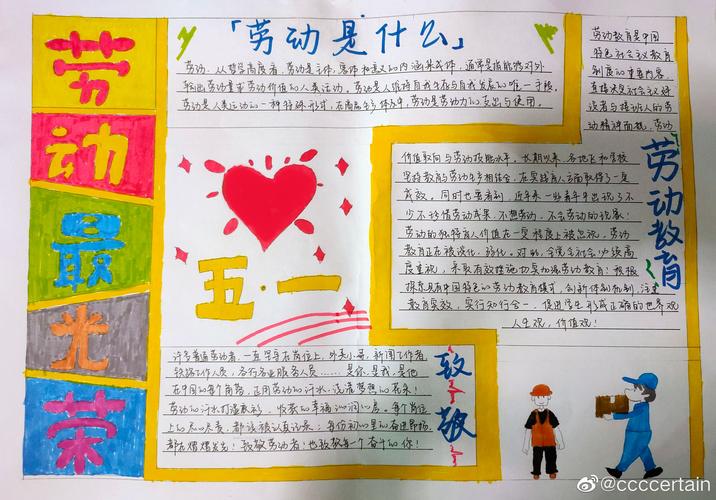 劳
动
最
光
荣
「劳动是什么」
劳动,从哲学高度看,劳动是主体,客体和意义的内涵集成体,通常是指能够对外
输出劳动量或劳动价值的人类运动。劳动是人维持自我生存与自我发展的唯一手段。
劳动是人类运动的一种特殊形式,在商品生产体系中,劳动是劳动力的支出与使用。
五·一
劳动教育是中国
特色社会主义教育
制度的重要内容,
直接决定社会主义建
设者与接班人的劳
动精神面貌,劳动
价值取向与劳动技能水平,长期以来,各地区和学校
坚持教育与劳动生产相结合,在实践育人方面取得了一定
成效。同时也要看到,近年来一些青年中出现了不
少不珍惜劳动成果,不想劳动,不会劳动的现象!
劳动的独特育人价值在一定程度上被忽视,劳动
教育正在被淡化,弱化。对此,全党全社会必须高
度重视,采取有效措施切实加强劳动教育!积极
探索具有中国特色的劳动教育模式,创新体制机制,注重
教育实效,实行知行合一,促进学生形成正确的世界观
人生观,价值观!
劳动教育
许多普通劳动者,一直坚守在岗位上,外卖小哥,新闻工作者
铁路工作人员,各行各业服务人员……是你是我是他
在中国的每个角落,正用劳动的汗水,浇灌梦想的花朵!
劳动的汗水打湿衣衫,收获的幸福
都在熠熠发光!致敬劳动者!也致敬每个奋斗的你!
致敬
@ccccertain